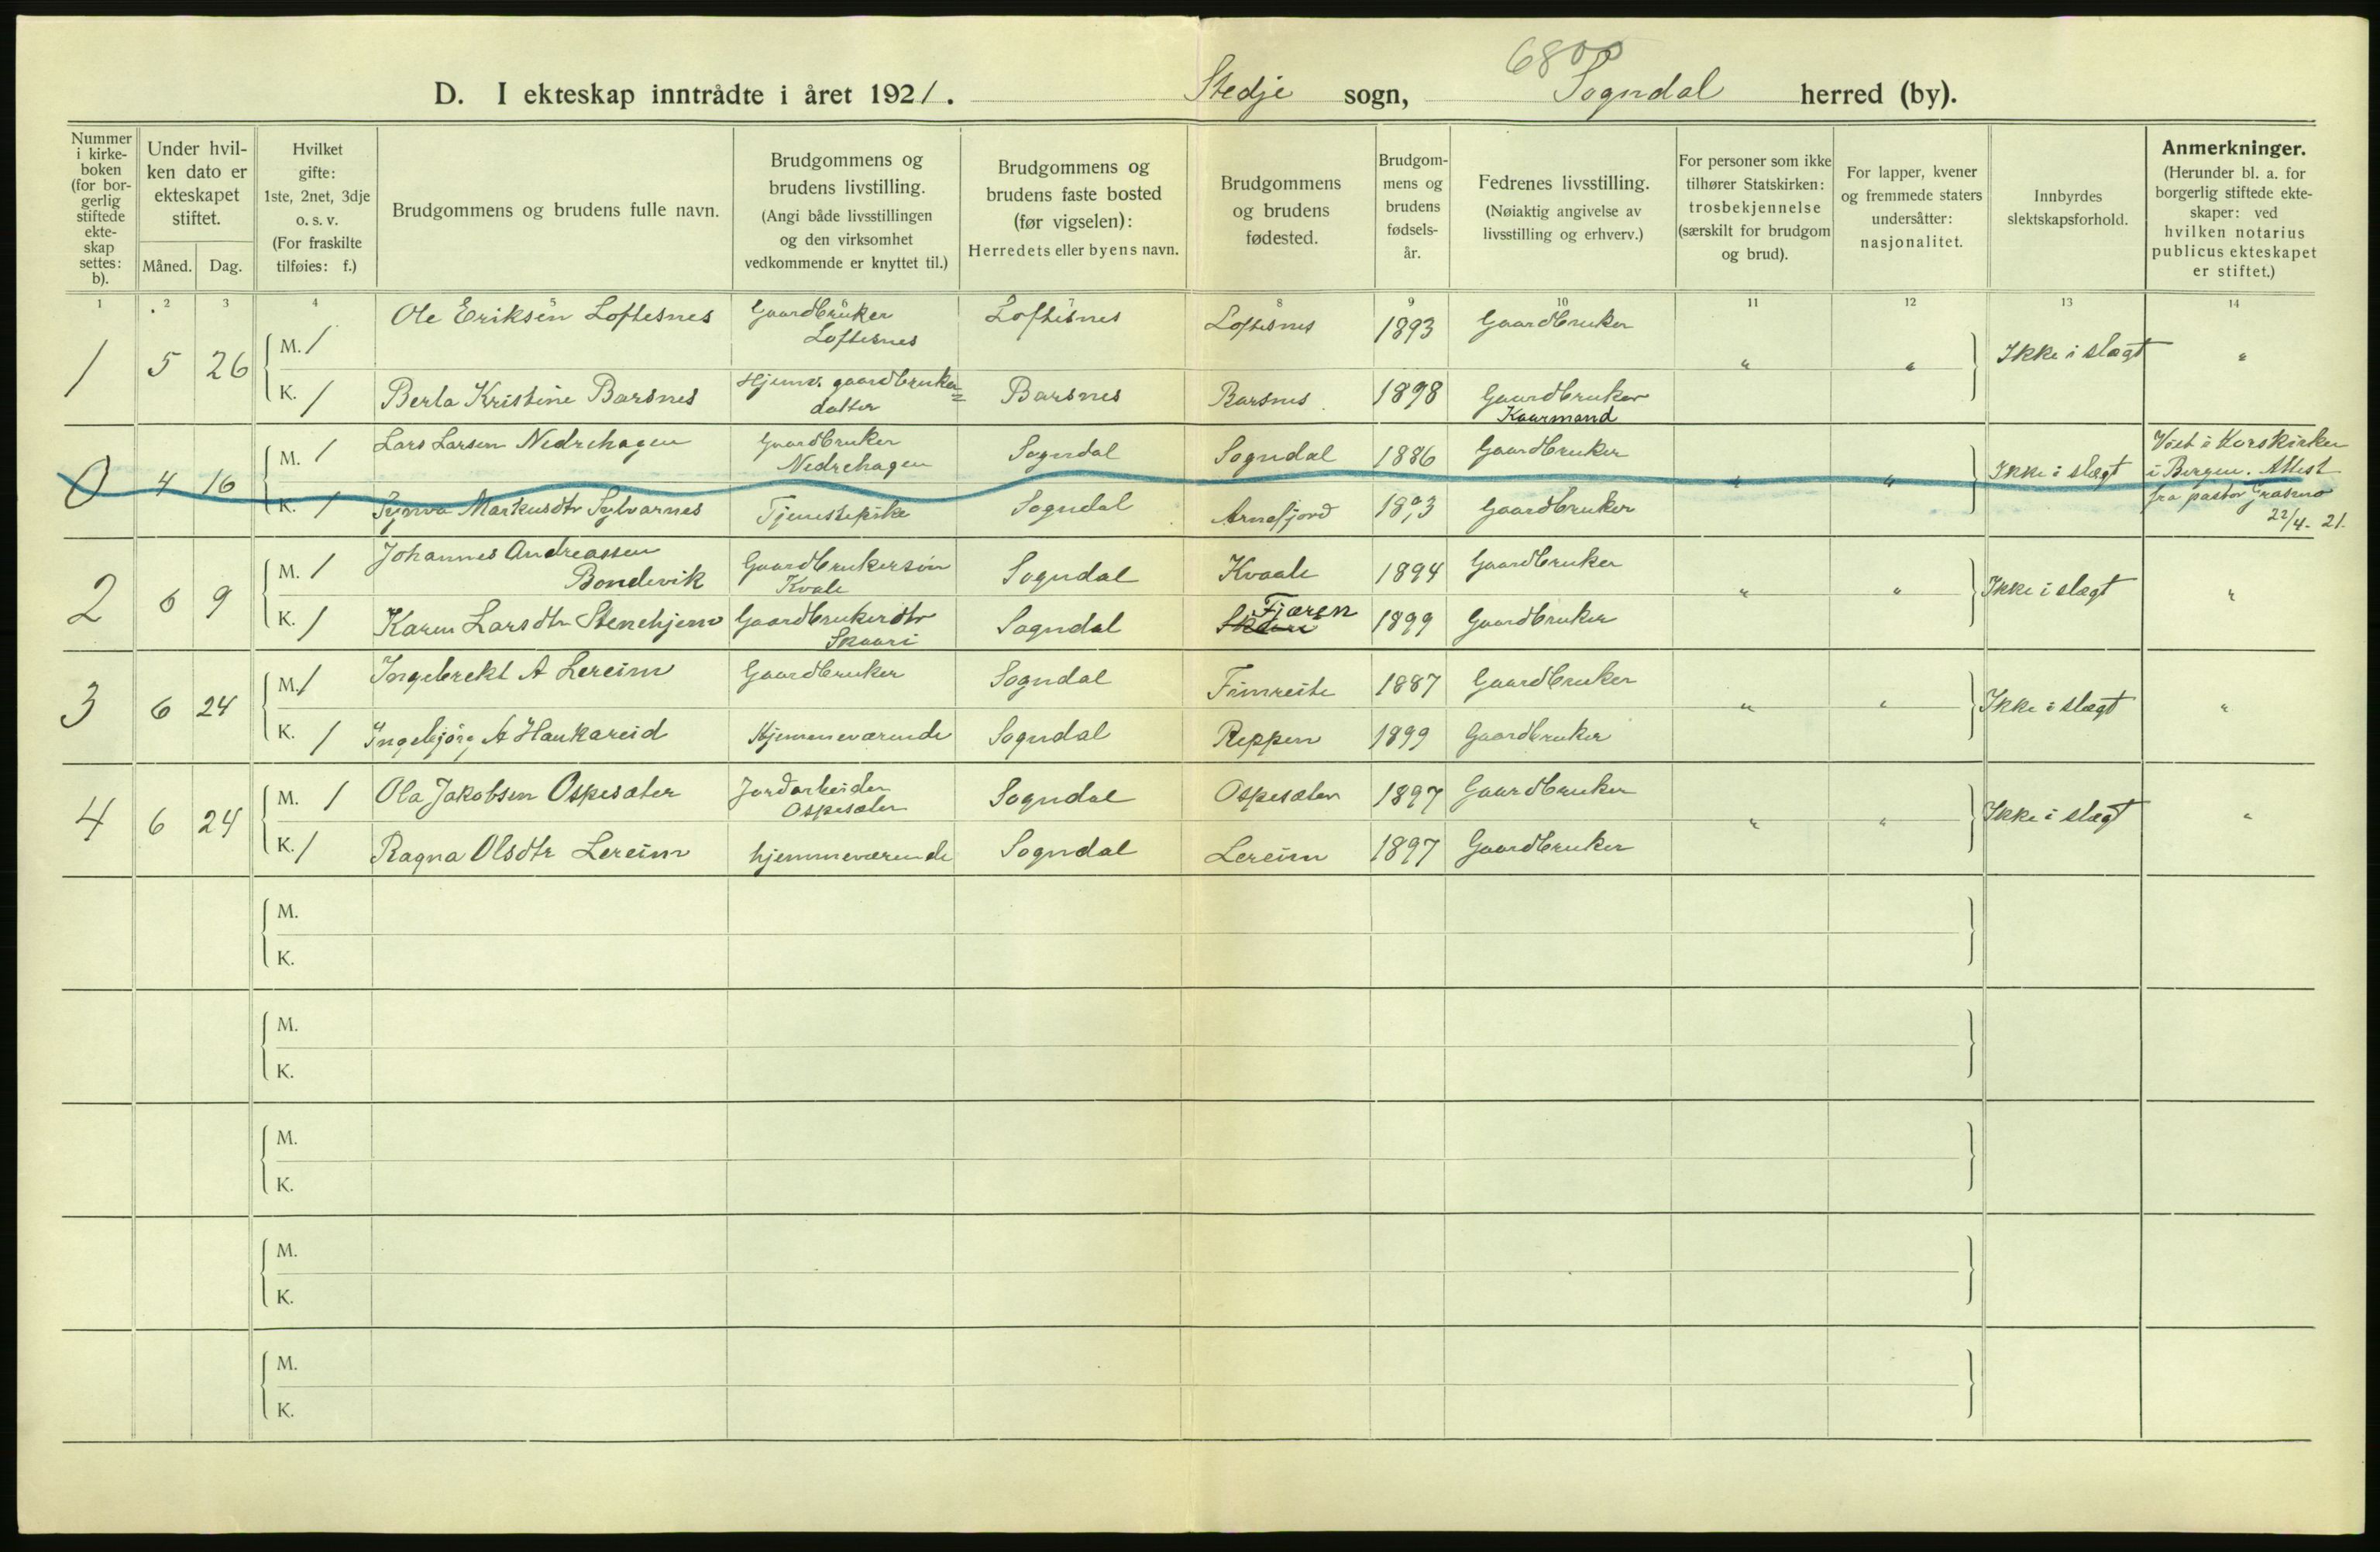 6800
D. I ekteskap inntrådte i året 1921. Stedje sogn, Sogndal herred (by).
Nummer i kirkeboken (for borgerlig stiftede ekteskap settes: b).
Under hvilken dato er ekteskapet stiftet.
Måned. Dag.
Hvilket gifte: 1ste, 2net, 3dje o. s. v. (For fraskilte tilføies: f.)
Brudgommens og brudens fulle navn.
Brudgommens og brudens livstilling. (Angi både livsstillingen og den virksomhet vedkommende er knyttet til.)
Brudgommens og brudens faste bosted (før vigselen): Herredets eller byens navn.
Brudgommens og brudens fødested.
Brudgommens og brudens fødselsår.
Fedrenes livsstilling. (Nøiaktig angivelse av livsstilling og erhverv.)
For personer som ikke tilhører Statskirken: trosbekjennelse (særskilt for brudgom og brud).
For lapper, kvener og fremmede staters undersåtter: nasjonalitet.
Innbyrdes slektskapsforhold.
Anmerkninger. (Herunder bl. a. for borgerlig stiftede ekteskaper: ved hvilken notarius publicus ekteskapet er stiftet.)
1 2 3 4 5 6 7 8 9 10 11 12 13 14
1 5 26 M. 1 Ole Eriksen Loftesnes Gaardbruker Loftesnes Loftesnes Loftesnes 1893 Gaardbruker " " Ikke i slægt "
K. 1 Berta Kristine Barsnes Hjemv. gaardbruker= datter Barsnes Barsnes 1898 Gaardbruker Kaarmand
0 4 16 M. 1 Lars Larsen Nedrehagen Gaardbruker Nedrehagen Sogndal Sogndal 1886 Gaardbruker " " Ikke i slægt Viet i Korskirken i Bergen. Attest fra pastor 22/4. 21.
K. 1 Synva Markusdtr Sylvarnes Tjenestepike Sogndal Arnafjord Gaardbruker
2 6 9 M. 1 Johannes Andreassen Bondevik Gaardbrukersøn Kvale Sogndal Kvaale 1894 Gaardbruker " " Ikke i slægt "
K. 1 Karen Larsdtr Stenehjem Gaardbrukerdtr Skaari Sogndal Fjæren Skaari 1899 Gaardbruker
3 6 24 M. 1 Ingebrekt A Lereim Gaardbruker Sogndal Fimreite 1887 Gaardbruker " " Ikke i slægt "
K. 1 Ingebjörg A Haukareid Hjemmeværende Sogndal Reppen 1899 Gaardbruker
4 6 24 M. 1 Ola Jakobsen Ospesæter Jordarbeider Ospesæter Sogndal Ospesæter 1897 Gaardbruker " " Ikke i slægt "
K. 1 Ragna Olsdtr Lereim hjemmeværende Sogndal Lereim 1897 Gaardbruker
M.
K.
M.
K.
M.
K.
M.
K.
M.
K.